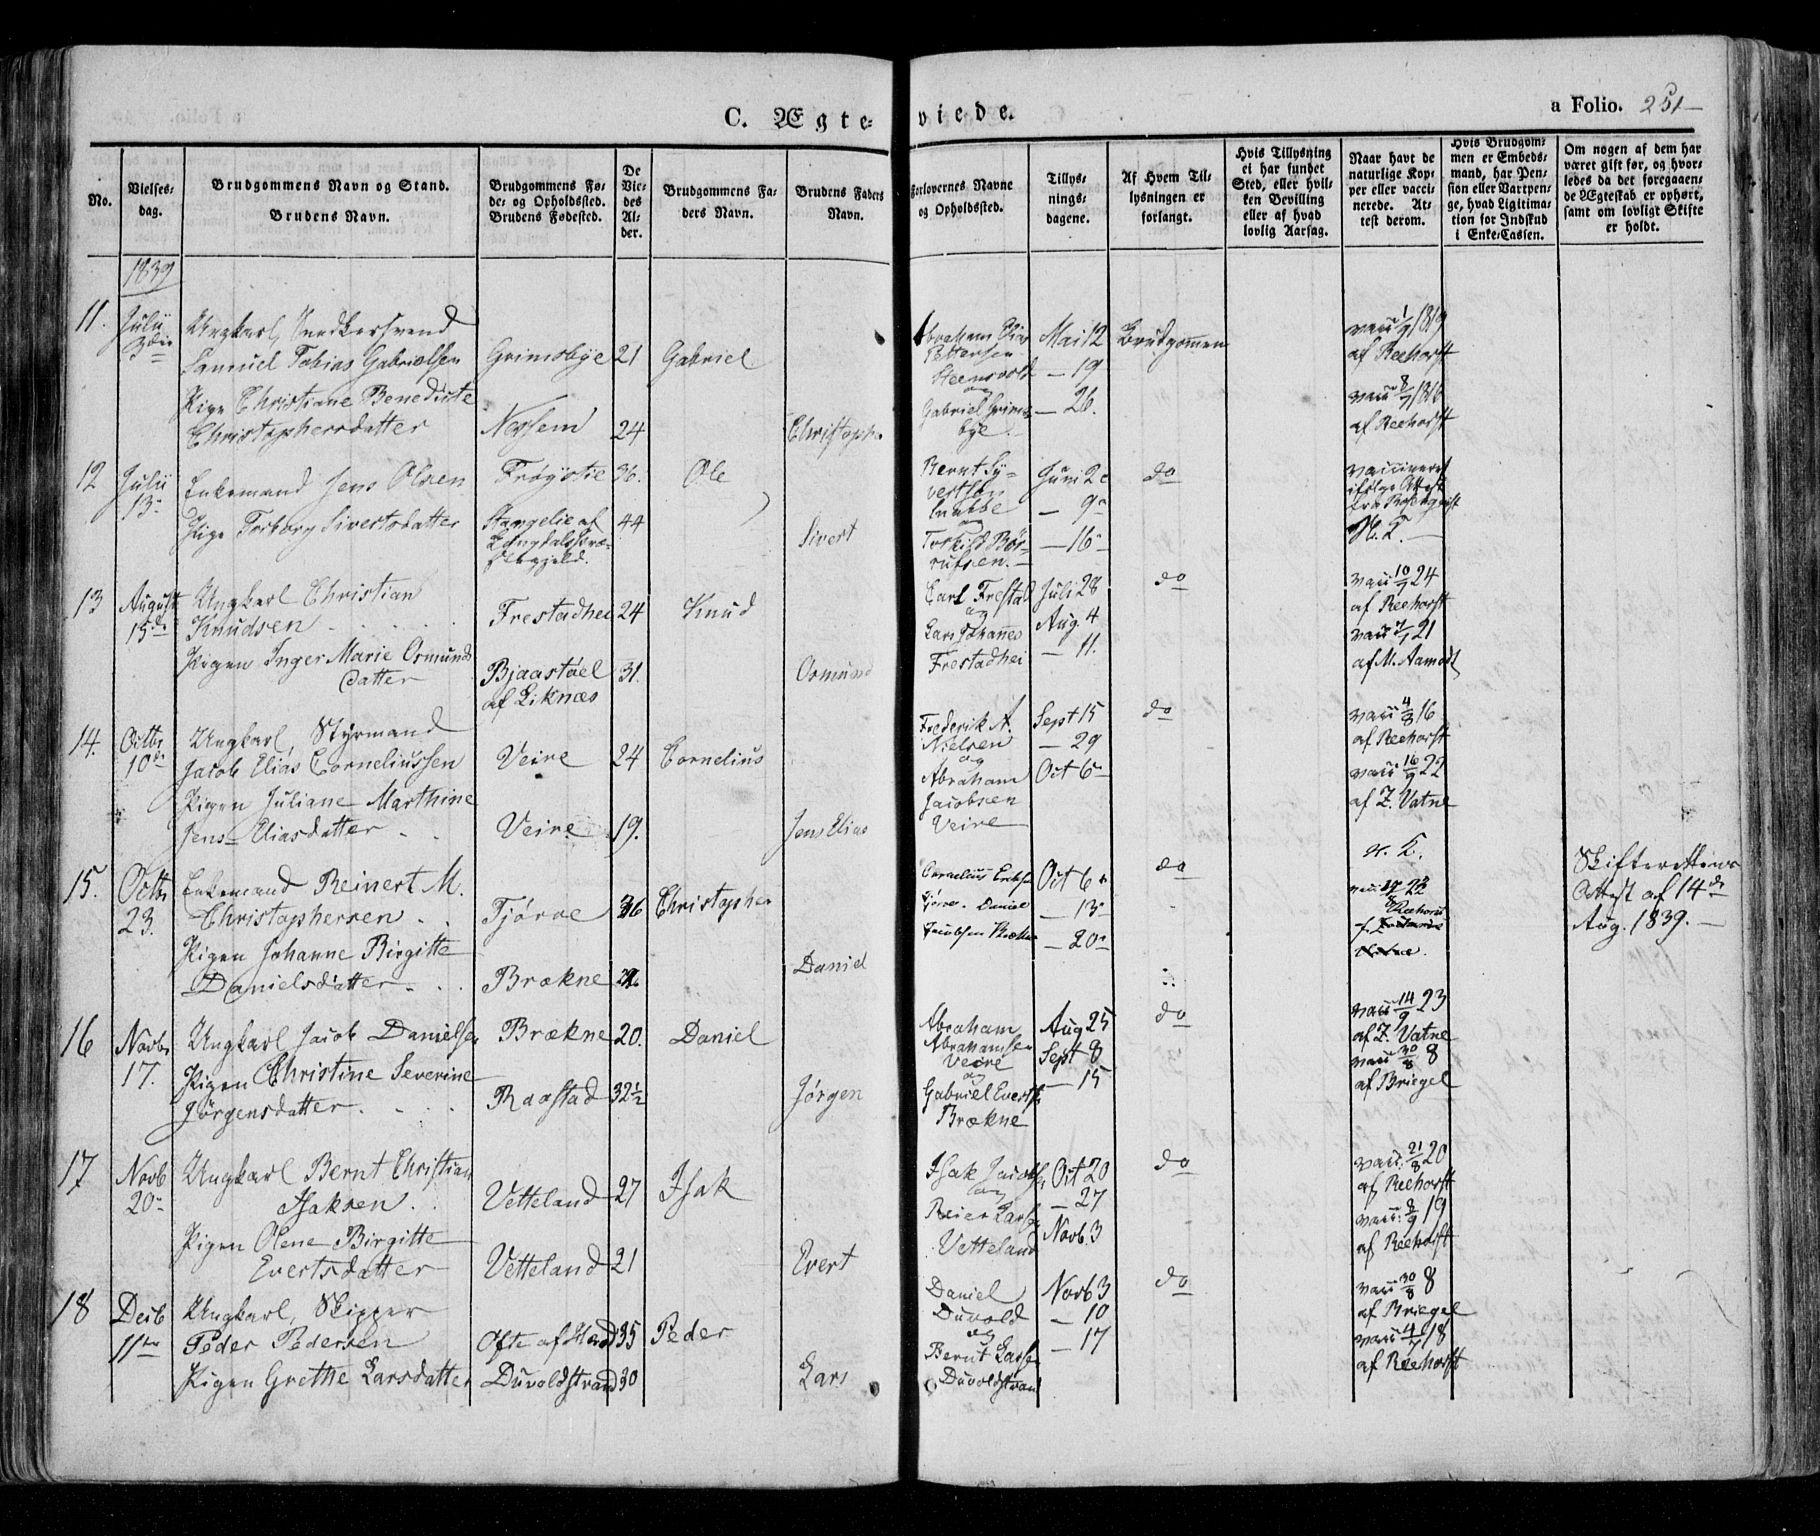 C. Ægteviede.
a Folio. 251
No.
Vielsesdag.
Brudgommens Navn og Stand.
Brudens Navn.
Brudgommens Føde- og Opholdssted.
Brudens Fødested.
De Viedes Alder.
Brudgommens Faders Navn.
Brudens Faders Navn.
Forlovernes Navne og Opholdssted.
Tillysningsdagene.
Af Hvem Tillysningen er forlangt.
Hvis Tillysning ei har fundet Sted, eller hvilken Bevilling eller af hvad lovlig Aarsag.
Naar havt de naturlige Kopper eller vaccinerede. Attest derom.
Hvis Brudgommen er Embedsmand, har Pension eller Vartpenge, hvad Legitimation for Indskud i Enke-Cassen.
Om nogen af dem har været gift før, og hvorledes da det foregaaende Ægteskab er ophørt, samt om lovligt Skifte er holdt.
1839
11. Julii 3die
Ungkarl, Snedkersvend
Samuel Tobias Gabrielsen Grimsbye 21 Gabriel
Pige Christiane Benedicte
Christophersdatter 24 Christopher
Abraham
Pettersen
Steensvold
og
Gabriel Grimsbye
Mai 12
— 19
— 26.
Brudgommen
vacc 1/9 1819
af Reehorst
vacc 8/7 1816
af Reehorst
12 Julii 13
Enkemand Jens Olsen Frøystie 36. Ole
Pige Torborg Sivertsdatter 44 Sivert
Bernt Syvertsen
og
Torkild
Juni 2
— 9
— 16
do
vaccineret
ifølge Attest
fra Rosenqvist
13 August 15de
Ungkarl Christian
Knudsen Frestadhei 24 Knud
Pigen Inger Marie Osmunds
datter Bjaastøel
af Liknæs 31. Osmund
Carl Frestad
og
Lars Johannes
Frestadhei
Juli 28
Aug. 4
— 11.
do
vacc 10/7 24
af Reehorst
vacc 7/7 21
af M. Aamodt
14. Octbr 10de
Ungkarl, Styrmand
Jacob Elias Corneliussen Veire 24 Cornelius
Pigen Juliane Marthine
Jens Eliasdatter Veire 19. Jens Elias
Frederik A.
Nielsen
og
Abraham
Jacobsen
Veire
Sept 15
— 29
Oct 6
do
vacc 4/8 16
af Reehorst
vacc 16/9 22
af Z. Vatne
15. Octbr 23.
Enkemand Reinert M.
Christophersen Tjørve 36 Christopher
Pigen Johanne Birgitte
Danielsdatter Brækne Daniel
Cornelius
Tjørve. Daniel
Jacobsen Brækne
Oct 6
— 13
— 20
do
Reehorst
Skifterettens
Attest af 14de
Aug. 1839.
16 Novbr 17.
Ungkarl Jacob Danielsen Brækne 20. Daniel
Pigen Christine Severine
Jørgensdatter Raastad 32½ Jørgen
Abraham
Abrahamsen
Veire
og
Gabriel Evertsen
Brækne
Aug 25
Sept 8
— 15
do
vacc 14/9 23
af Z. Vatne
vacc 30/8 8
af Briegel
17 Novb 20
Ungkarl Bernt Christian
Isaksen Vetteland 27 Isak
Pigen Olene Birgitte
Evertsdatter Vetteland 21 Evert
Isak Jacobsen
og
Reier Larsen
Vetteland
Oct 20
— 27
Novb. 3
do
vacc: 21/8 20
af Reehorst
vacc: 8/9 19
af Reehorst
18 Decb 11te
Ungkarl, Skipper
Peder Pedersen 35 Peder
Pigen Grethe Larsdatter Duvoldstrand 30 Lars
Daniel
Duvold
og
Bernt Larsen
Duvoldstrand
Novb 3
— 10
— 17
do
vacc 30/8 8
af Briegel
vacc 4/7 18
af Reehorst